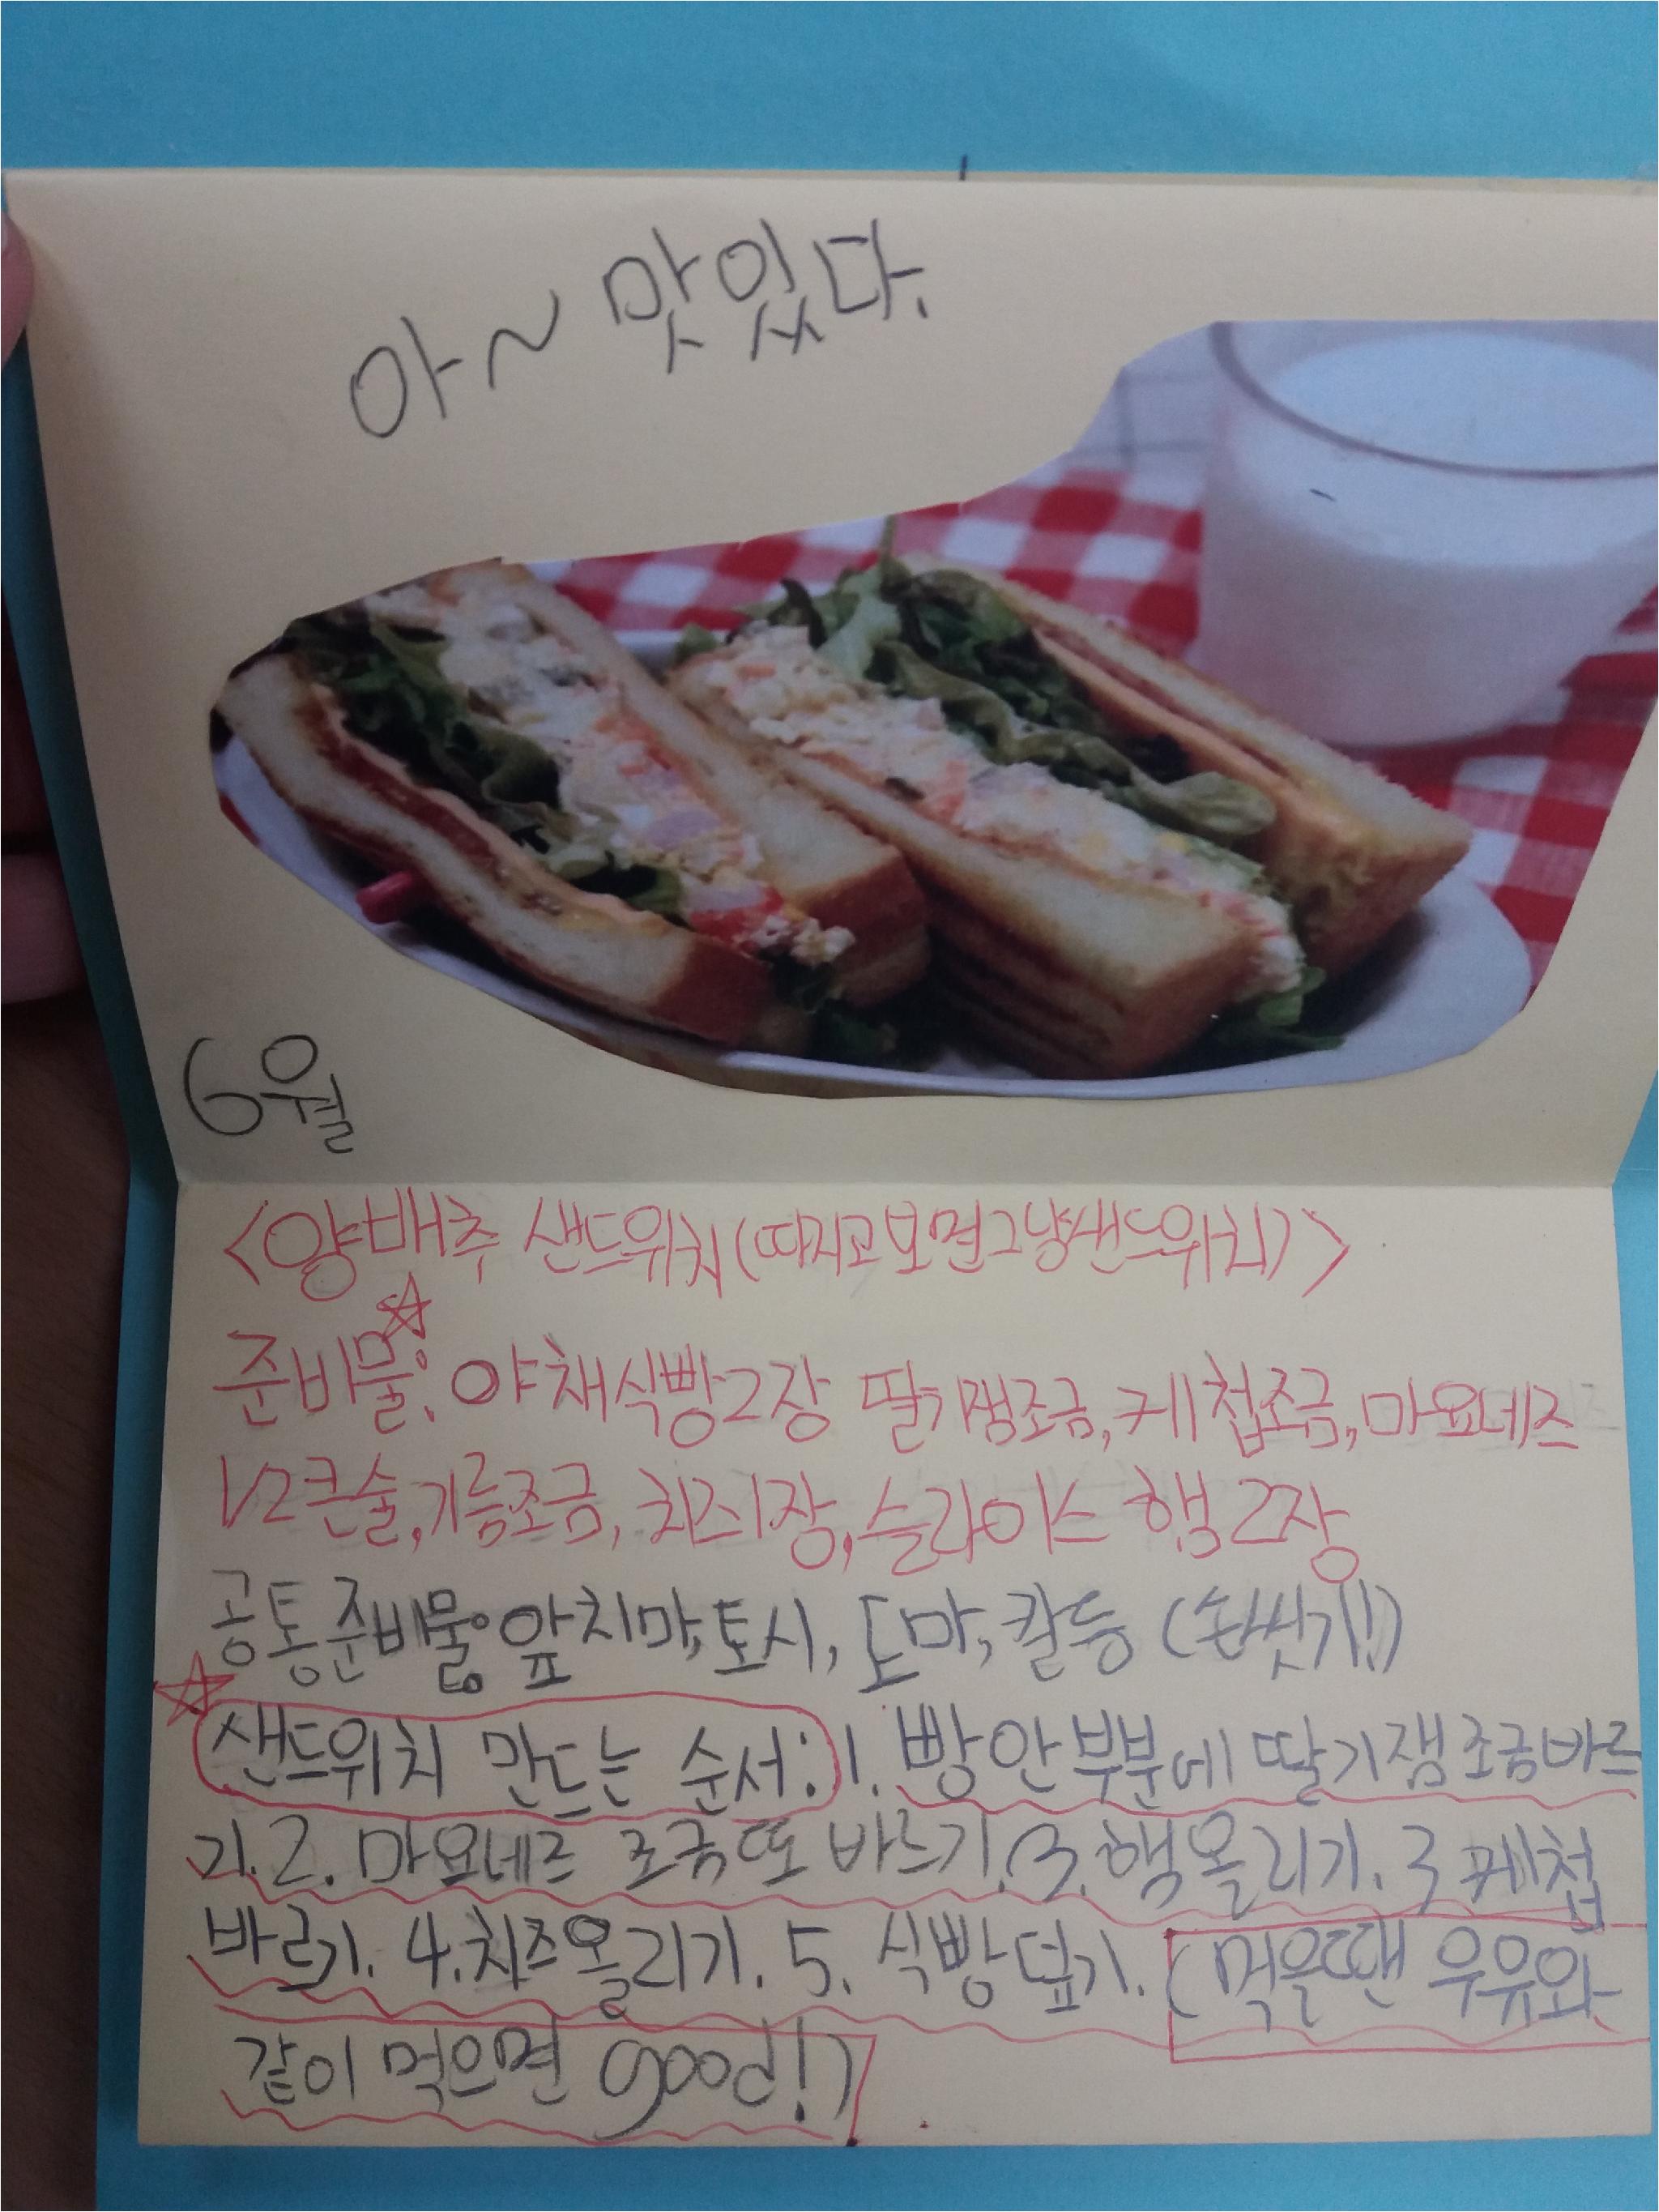 아~ 맛있다.
6월
<양배추 샌드위치(따지고보면그냥샌드위치)>
준비물: 야채식빵2장 딸기잼조금, 케첩조금, 마요네즈
1/2큰술,기름조금, 치즈1장, 슬라이스 햄2장
공통준비물: 앞치마, 토시, 도마, 칼등 (손씻기!)
샌드위치 만드는 순서: 1. 빵안부분에 딸기잼조금바르
기.2. 마요네즈 조금또 바르기.3.햄올리기. 3 케첩
바르기. 4.치즈올리기. 5. 식빵덮기. (먹을땐 우유와
같이 먹으면 good!)